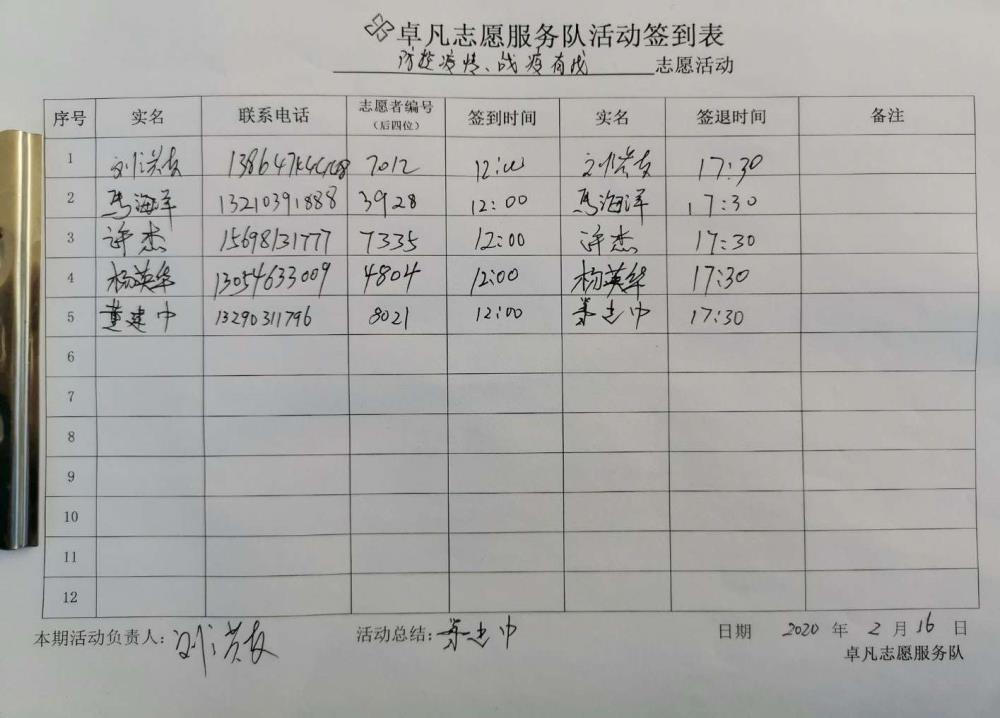 卓凡志愿服务队活动签到表
防控疫情、战疫有我 志愿活动
序号 实名 联系电话 志愿者编号（后四位） 签到时间 实名 签退时间 备注
1 刘洪友 7012 12:00 刘洪友 17:30
2 马海洋 13210391888 3928 12:00 马海洋 17:30
3 许杰 15698131777 7335 12:00 许杰 17:30
4 杨英华 13054633009 4804 12:00 杨英华 17:30
5 董建中 13290311796 8021 12:00 董建中 17:30
6
7
8
9
10
11
12
本期活动负责人：刘洪友 活动总结：董建中 日期 2020 年 2 月 16 日
卓凡志愿服务队